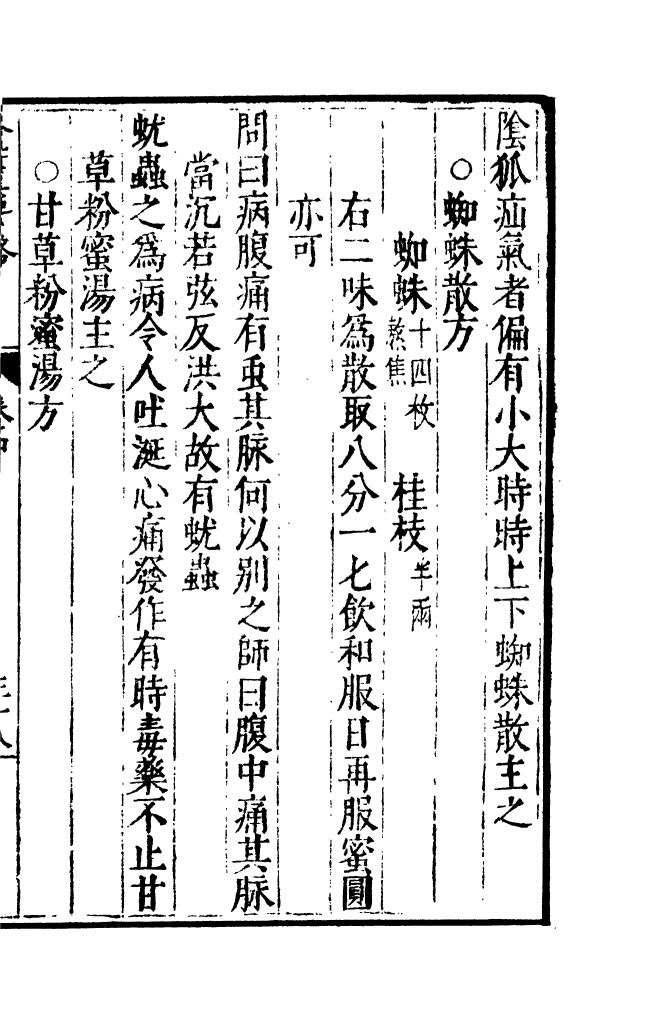 陰狐疝氣者偏有小大時時上下蜘蛛散主之
○蜘蛛散方
蜘蛛十四枚熬焦　桂枝半兩
右二味為散取八分一七飲和服日再服蜜圓
亦可
問曰病腹痛有虫其脉何以别之師曰腹中痛其脉
當沉若弦反洪大故有蚘蟲
蚘蟲之為病令人吐涎心痛發作有時毒藥不止甘
草粉蜜湯主之
○甘草粉蜜湯方